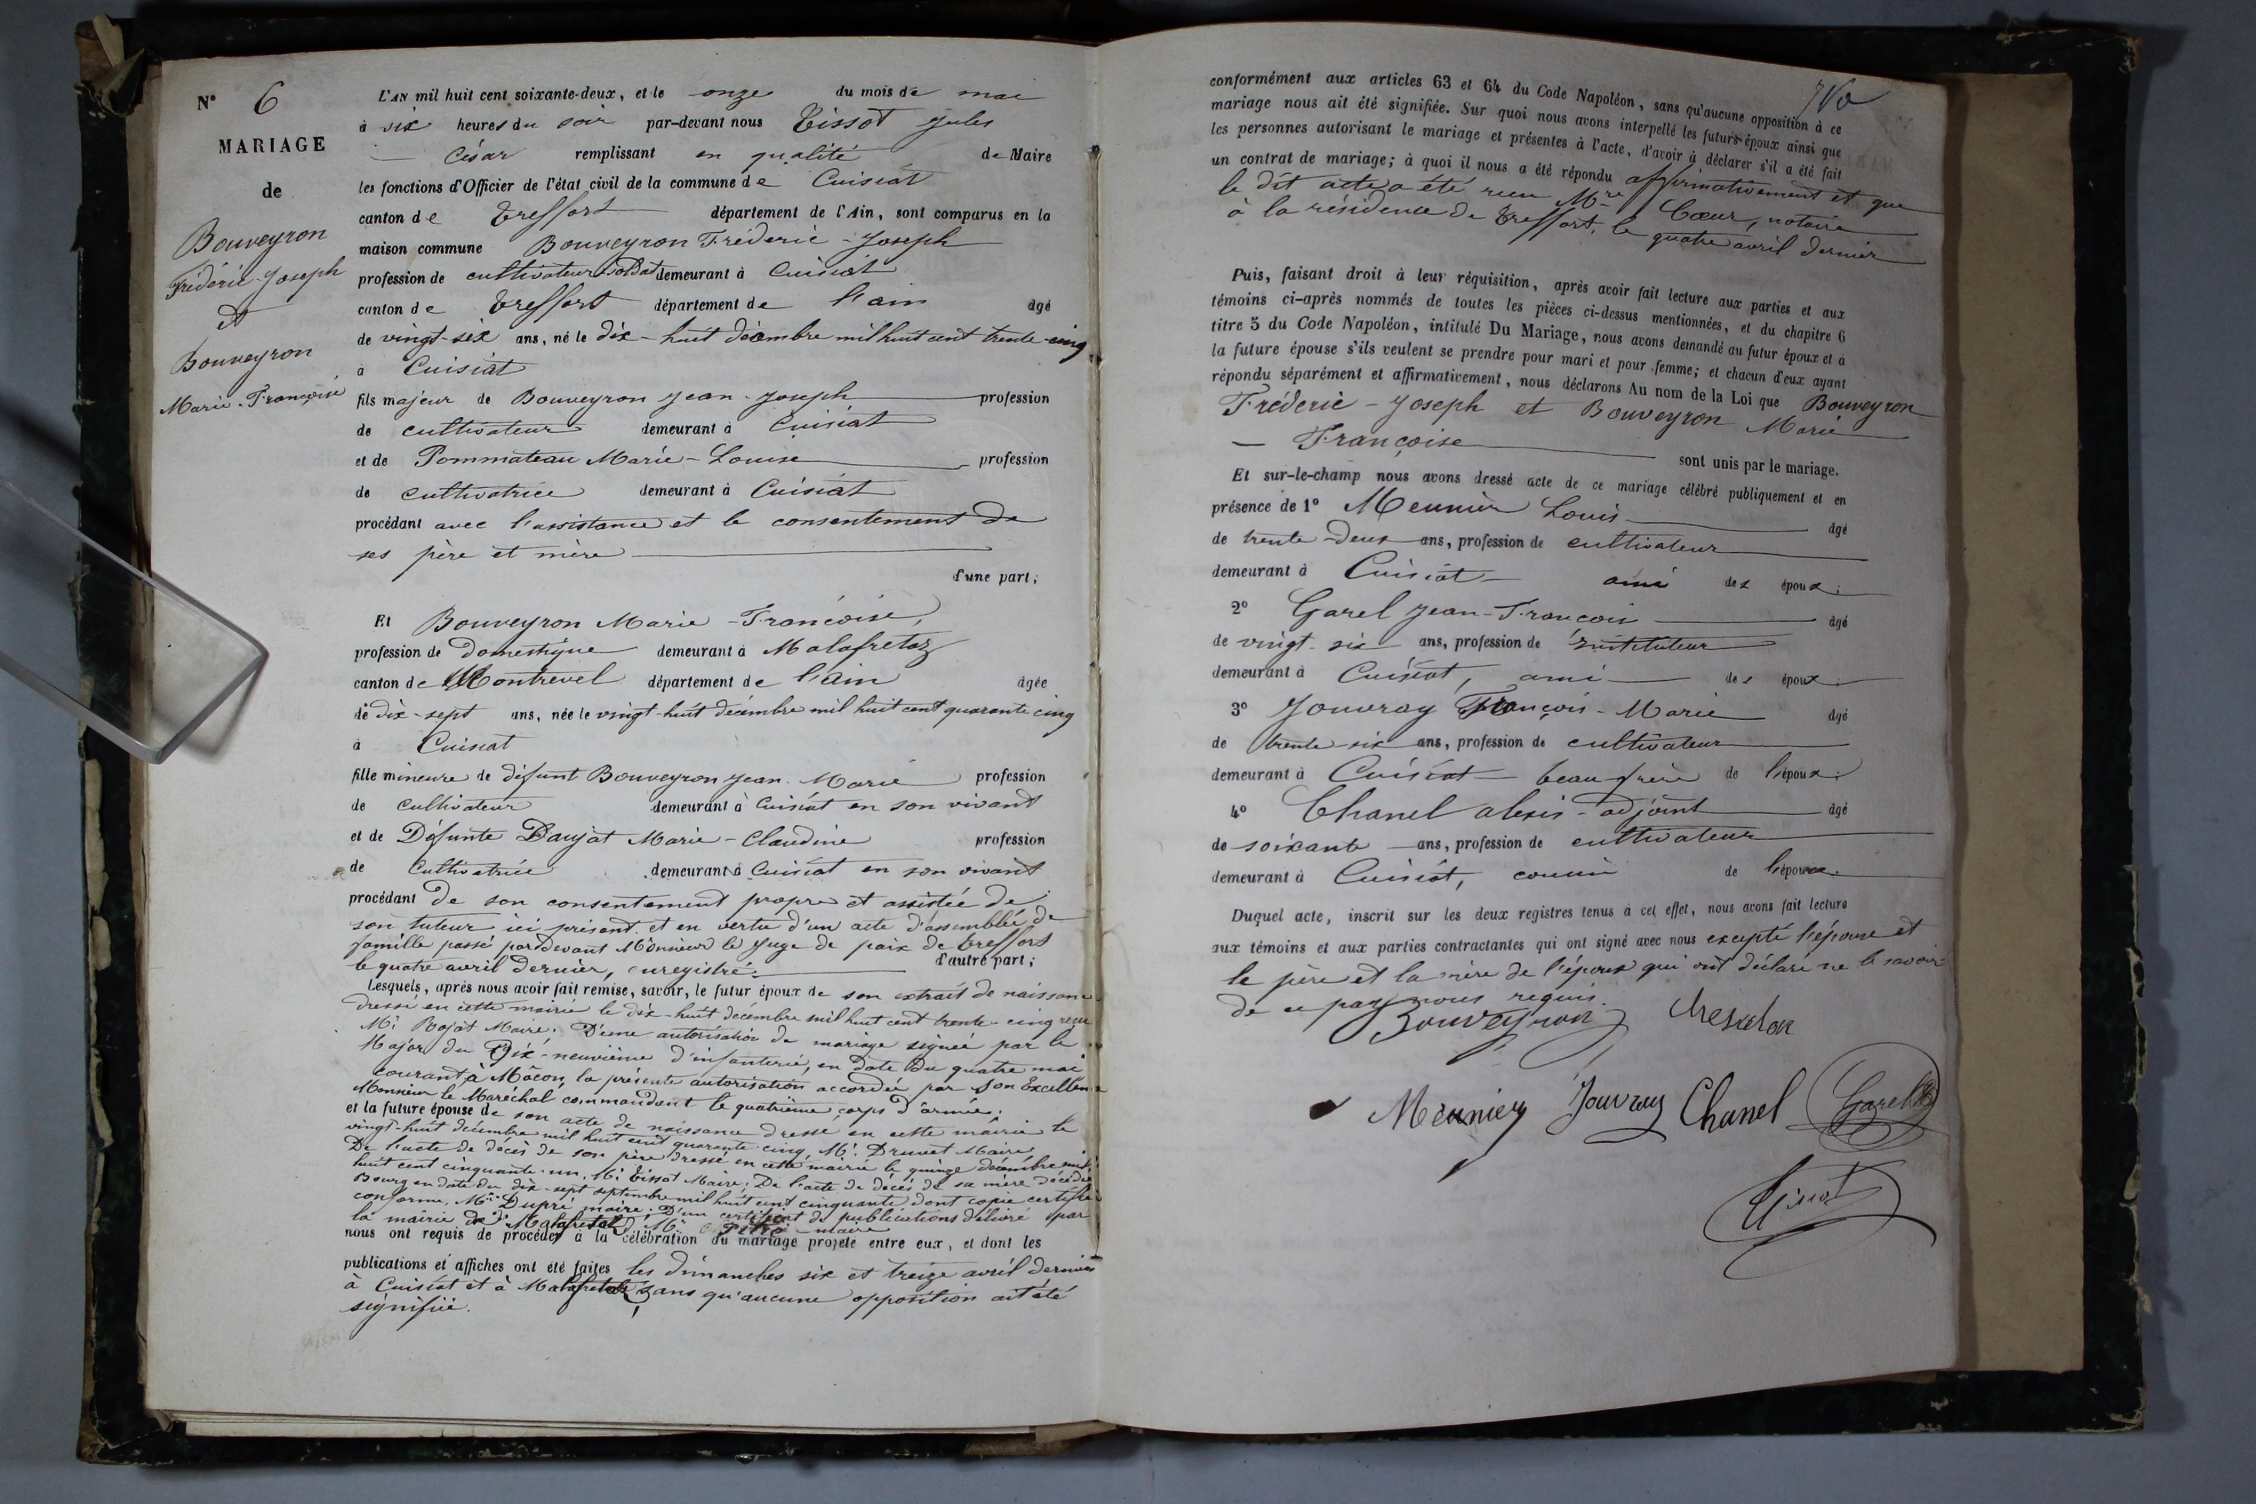 N° 6
MARIAGE
de
Bouveyron
Fréderic-Joseph
et
Bouveyron
Marie-Françoise
L'AN mil huit cent soixante-deux, et le onze du mois de mai
à six heures du soir par-devant nous Tissot Jules
César remplissant en qualité de Maire
les fonctions d'Officier de l'état civil de la commune de Cuisiat
canton de Treffort département de l'Ain, sont comparus en la
maison commune Bouveyron Fréderic-Joseph
profession de cultivateur soldat demeurant à Cuisiat
canton de Treffort département de l'ain âgé
de vingt-six ans, né le dix-huit décembre mil huit cent trente-cinq
à Cuisiat
fils majeur de Bouveyron Jean-Joseph profession
de cultivateur demeurant à Cuisiat
et de Pommateau Marie-Louise profession
de cultivatrice demeurant à Cuisiat
procédant avec l'assistance et le consentement de
ses père et mère
d'une part;
Et Bouveyron Marie-Françoise,
profession de domestique demeurant à Malafretaz
canton de Montrevel département de l'Ain âgée
de dix-sept ans, née le vingt-huit décembre mil huit cent quarante cinq
à Cuisiat
fille mineure de défunt Bouveyron Jean-Marie profession
de cultivateur demeurant à Cuisiat en son vivant
et de Défunte Daujat Marie-Claudine profession
de Cultivatrice demeurant à Cuisiat en son vivant
procédant de son consentement propre et assistée de
son tuteur ici présent et en vertu d'un acte d'assemblée de
famille passé pardevant Monsieur le Juge de paix de Treffort
le quatre avril dernier, enregistré. d'autre part;
Lesquels, après nous avoir fait remise, savoir, le futur époux de son extrait de naissance
dressé en cette mairie le dix-huit décembre mil huit cent trente-cinq reçu
Mr Rojat Maire; D'une autorisation de mariage signée par le
Major du Dix-neuvième d'infanterie, en date du quatre mai
courant à Mâcon, la présente autorisation accordée par Son Excellence
Monsieur le Maréchal commandant le quatrième corps d'armée;
et la future épouse de son acte de naissance dressé en cette mairie le
vingt-huit décembre mil huit cent quarante-cinq, Mr Druvet Maire,
De l'acte de décès de son père dressé en cette mairie le quinze décembre mil
huit cent cinquante-un, Mr Tissot Maire; De l'acte de décès de sa mère décédée
Bourg en date du dix-sept septembre mil huit cent cinquante dont copie certifiée
conforme, Mr Dupré maire; D'un certificat de publications délivré par
la mairie de Malafretaz, Mr maire
nous ont requis de procéder à la célébration du mariage projeté entre eux, et dont les
publications et affiches ont été faites les dimanches six et treize avril dernier
à Cuisiat et à Malafretaz sans qu'aucune opposition ait été
signifiée.
conformément aux articles 63 et 64 du Code Napoléon, sans qu'aucune opposition à ce
mariage nous ait été signifiée. Sur quoi nous avons interpellé les futurs époux ainsi que
les personnes autorisant le mariage et présentes à l'acte, d'avoir à déclarer s'il a été fait
un contrat de mariage; à quoi il nous a été répondu affirmativement et que
le dit acte a été reçu Mre Cœur, notaire
à la résidence de Treffort, le quatre avril dernier
Puis, faisant droit à leur réquisition, après avoir fait lecture aux parties et aux
témoins ci-après nommés de toutes les pièces ci-dessus mentionnées, et du chapitre 6
titre 5 du Code Napoléon, intitulé Du Mariage, nous avons demandé au futur époux et à
la future épouse s'ils veulent se prendre pour mari et pour femme; et chacun d'eux ayant
répondu séparément et affirmativement, nous déclarons Au nom de la Loi que Bouveyron
Fréderic-Joseph et Bouveyron Marie
- Françoise sont unis par le mariage.
Et sur-le-champ nous avons dressé acte de ce mariage célébré publiquement et en
présence de 1° Meunier Louis âgé
de trente-deux ans, profession de cultivateur
demeurant à Cuisiat ami des époux;
2° Garel Jean-François âgé
de vingt-six ans, profession de instituteur
demeurant à Cuisiat, ami des époux;
3° Jouvray François-Marie âgé
de trente-six ans, profession de cultivateur
demeurant à Cuisiat beau frère de l'époux;
4° Chanel alexis-adjoint âgé
de soixante ans, profession de cultivateur
demeurant à Cuisiat, cousin de l'épouse.
Duquel acte, inscrit sur les deux registres tenus à cet effet, nous avons fait lecture
aux témoins et aux parties contractantes qui ont signé avec nous excepté l'épouse et
le père et la mère de l'époux qui ont déclaré ne le savoir
de ce par nous requis.
Bouveyron
Meunier Jouvray Chanel Garel
Tissot